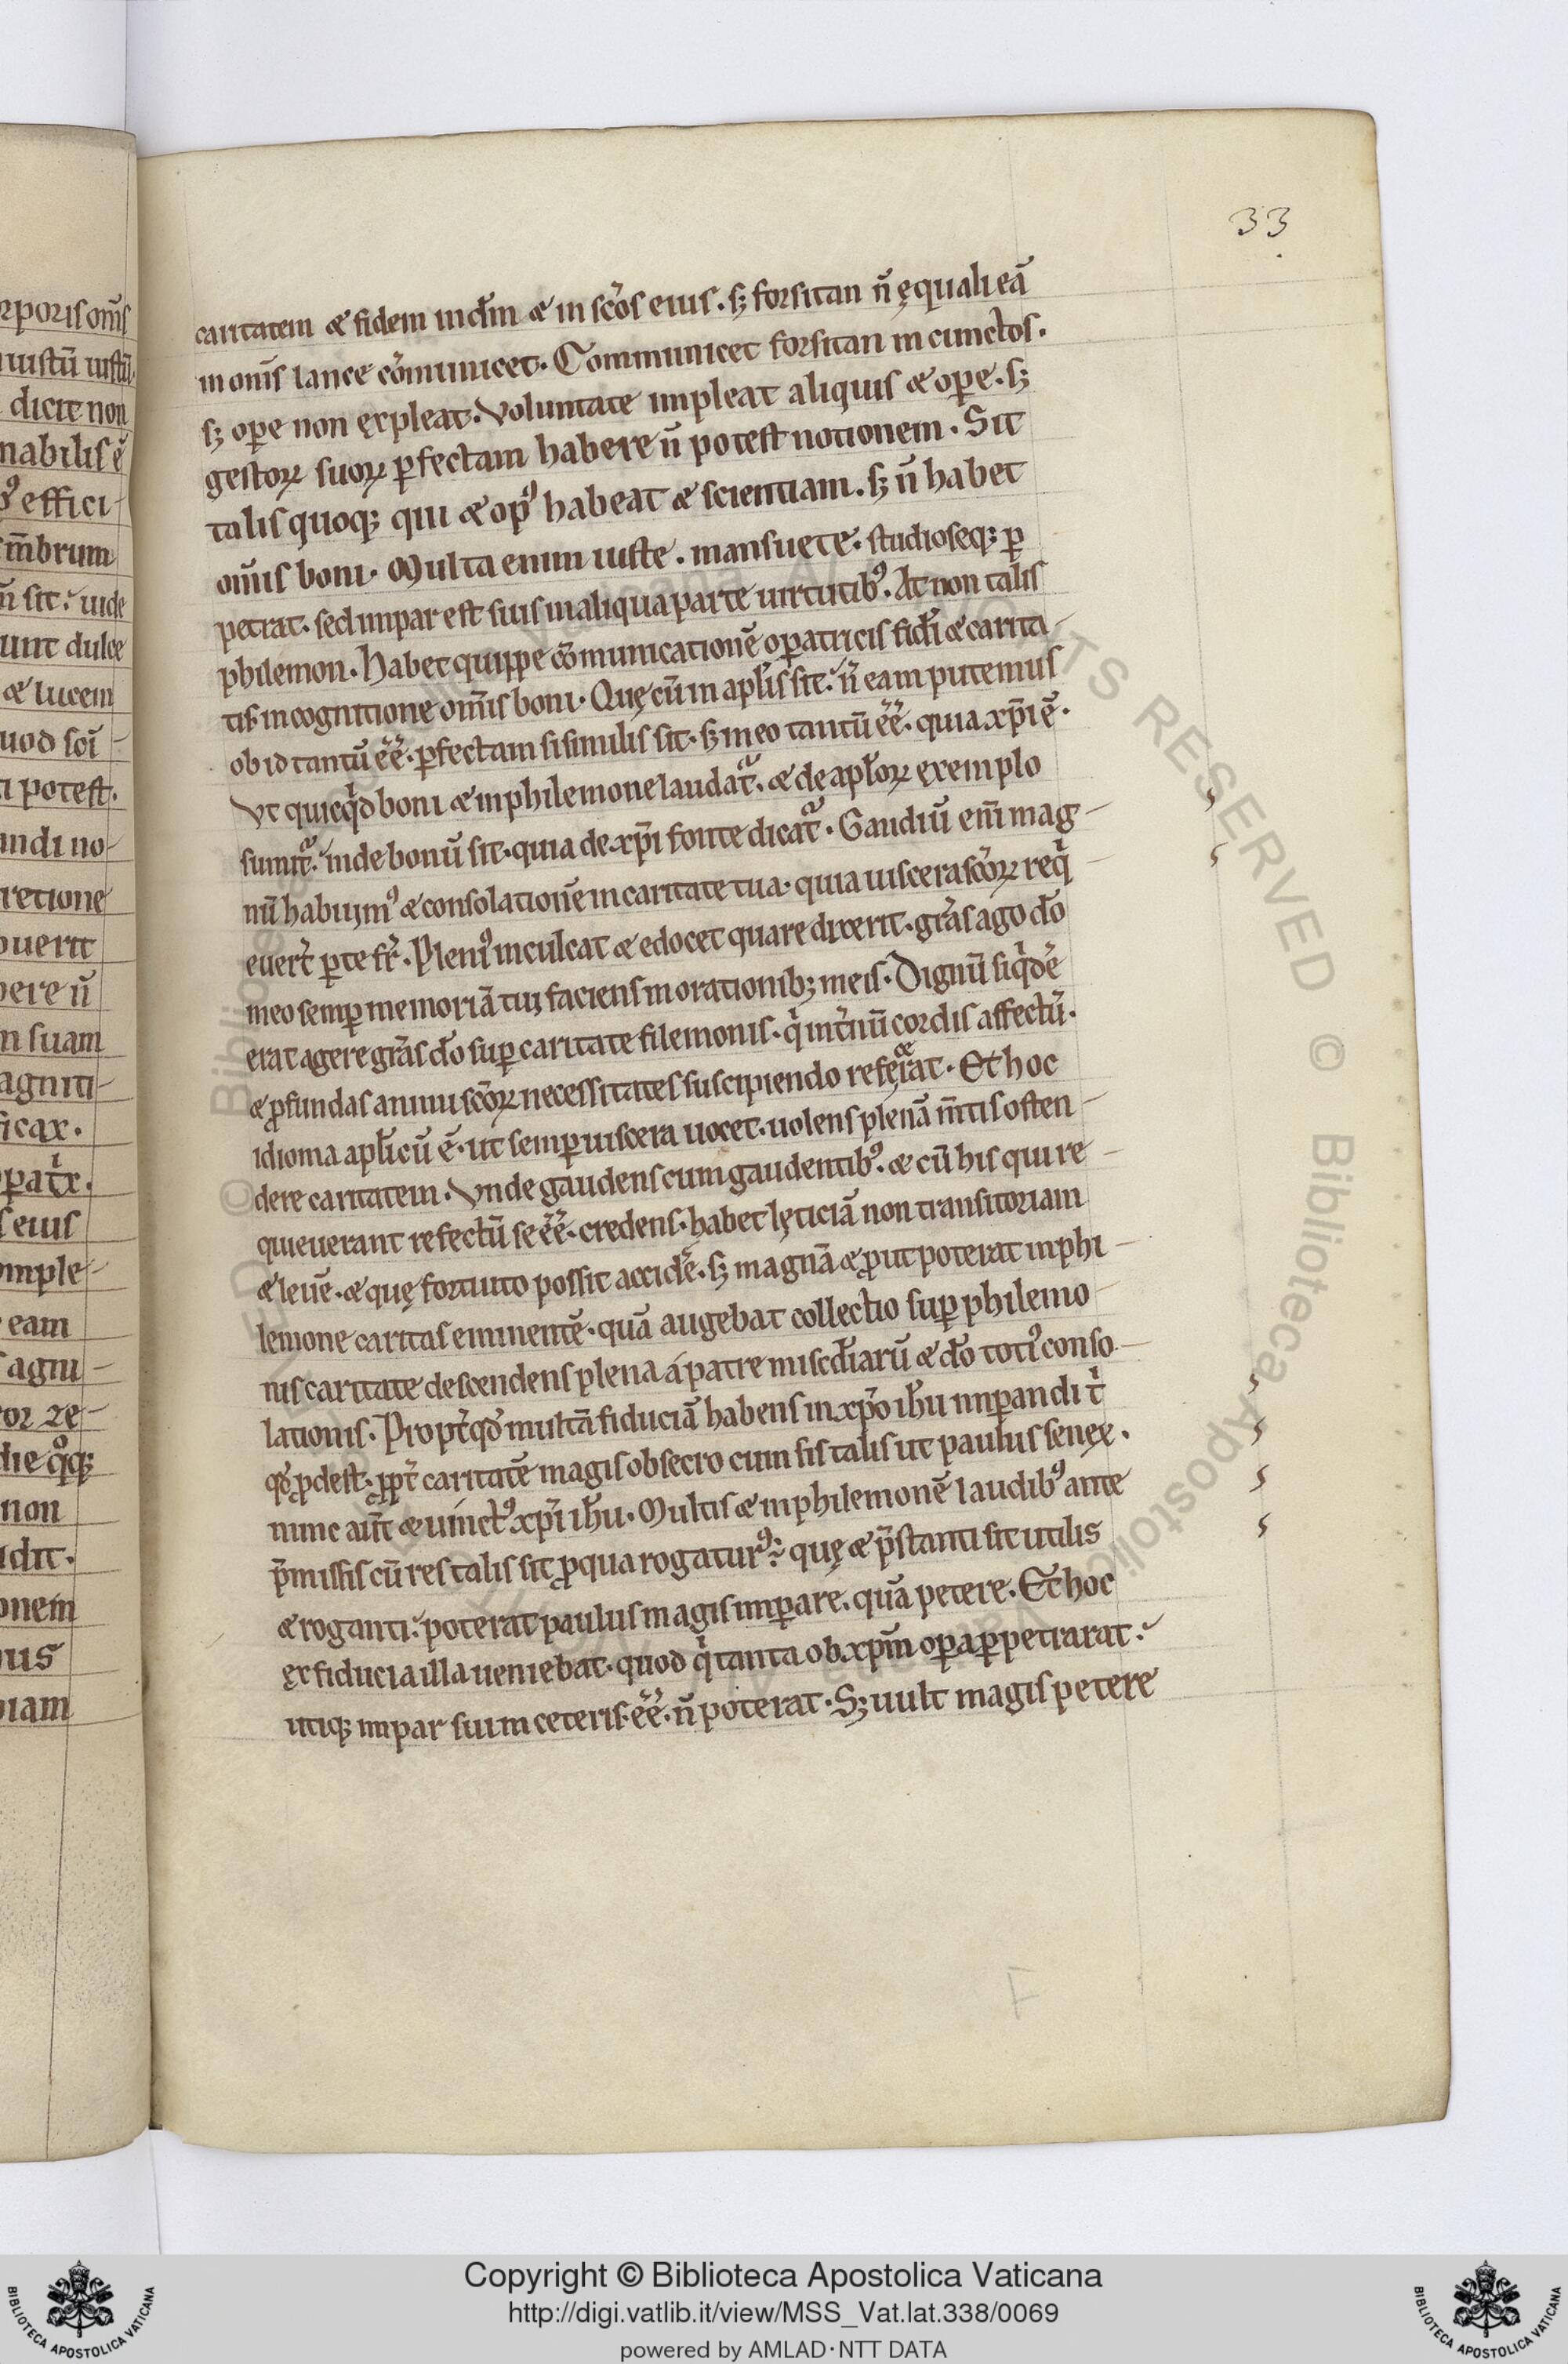 33
caritatem & fidem in dm̄ & in sc̄os eius. sꝫ forsitan n̄ ęquali eā
in om̄s lance cōmunicet. Communicet forsitan in cunctos.
sꝫ oꝑe non expleat. Voluntate impleat aliquis & oꝑe. sꝫ
gestoꝝ suoꝝ ꝑfectam habere n̄ potest notionem. Sit
talis quoqꝫ qui & opꝰ habeat & scientiam. sꝫ n̄ habet
om̄is boni. Multa enim iuste. mansuete. studioseqꝫ ꝑ
petrat. sed impar est suis in aliqua parte uirtutibꝰ. At non talis
philemon. Habet quippe cōmunicationē oꝑatricis fidi̅ & carita-
tis in cognitione om̄is boni. Quę cū in apl̄is sit. n̄ eam putemus
ob id tantū ēē. ꝑfectam si similis sit. sꝫ in eo tantū ēē. quia xp̄i ē.
Vt quicqͥd boni & in philemone laudat᷑. & de apl̄oꝝ exemplo
sumit᷑. inde bonū sit. quia de xp̄i fonte dicat᷑. Gaudiū eni̅ mag-
nū habuimꝰ & consolationē in caritate tua. quia uiscera sc̄oꝝ reqͥ-
euert̄ ꝑ te fr̄. Pleniꝰ inculcat & edocet quare dixerit. gr̄as ago dō
meo semꝑ memoriā tui faciens in orationibꝫ meis. Dignū siqͥdē
erat agere gr̄as dō suꝑ caritate filemonis. qͥ int̄nū cordis affectū.
& ꝓfundas animi sc̄oꝝ necessitates suscipiendo referat. Et hoc
idioma apl̄icū ē. ut semꝑ uiscera uocet. uolens plenā m̄tis osten-
dere caritatem. Vnde gaudens cum gaudentibꝰ. & cū his qui re-
quieuerant refectū se ēē. credens. habet lęticiā non transitoriam
& leuē. & quę fortuito possit accidē. sꝫ magnā & ꝓut poterat in phi-
lemone caritas eminentē. quā augebat collectio suꝑ philemo-
nis caritate descendens plena á patre misc̄diarū & dō totiꝰ conso-
lationis. Propt̄ qd̄ multā fiduciā habens in xp̄o ih̄u imꝑandi tͥ
qd̄ ꝓdest. ꝓpt̄ caritatē magis obsecro cum sis talis ut paulus senex.
nunc aut̄ & uinctꝰ xp̄i ih̄u. Multis & in philemonē laudibꝰ ante
p̄missis cū res talis sit ꝓ qua rogaturꝰ. quę & p̄stanti sit utilis
& roganti. poterat paulus magis imꝑare. quā petere. Et hoc
ex fiducia illa ueniebat. quod qͥ tanta ob xp̄m oꝑa ꝑpetrarat.
utiqꝫ impar sui in ceteris. ēē. n̄ poterat. Sꝫ uult magis petere
F
Copyright © Biblioteca Apostolica Vaticana
http://digi.vatlib.it/view/MSS_Vat.lat.338/0069
powered by AMLAD·NTT DATA